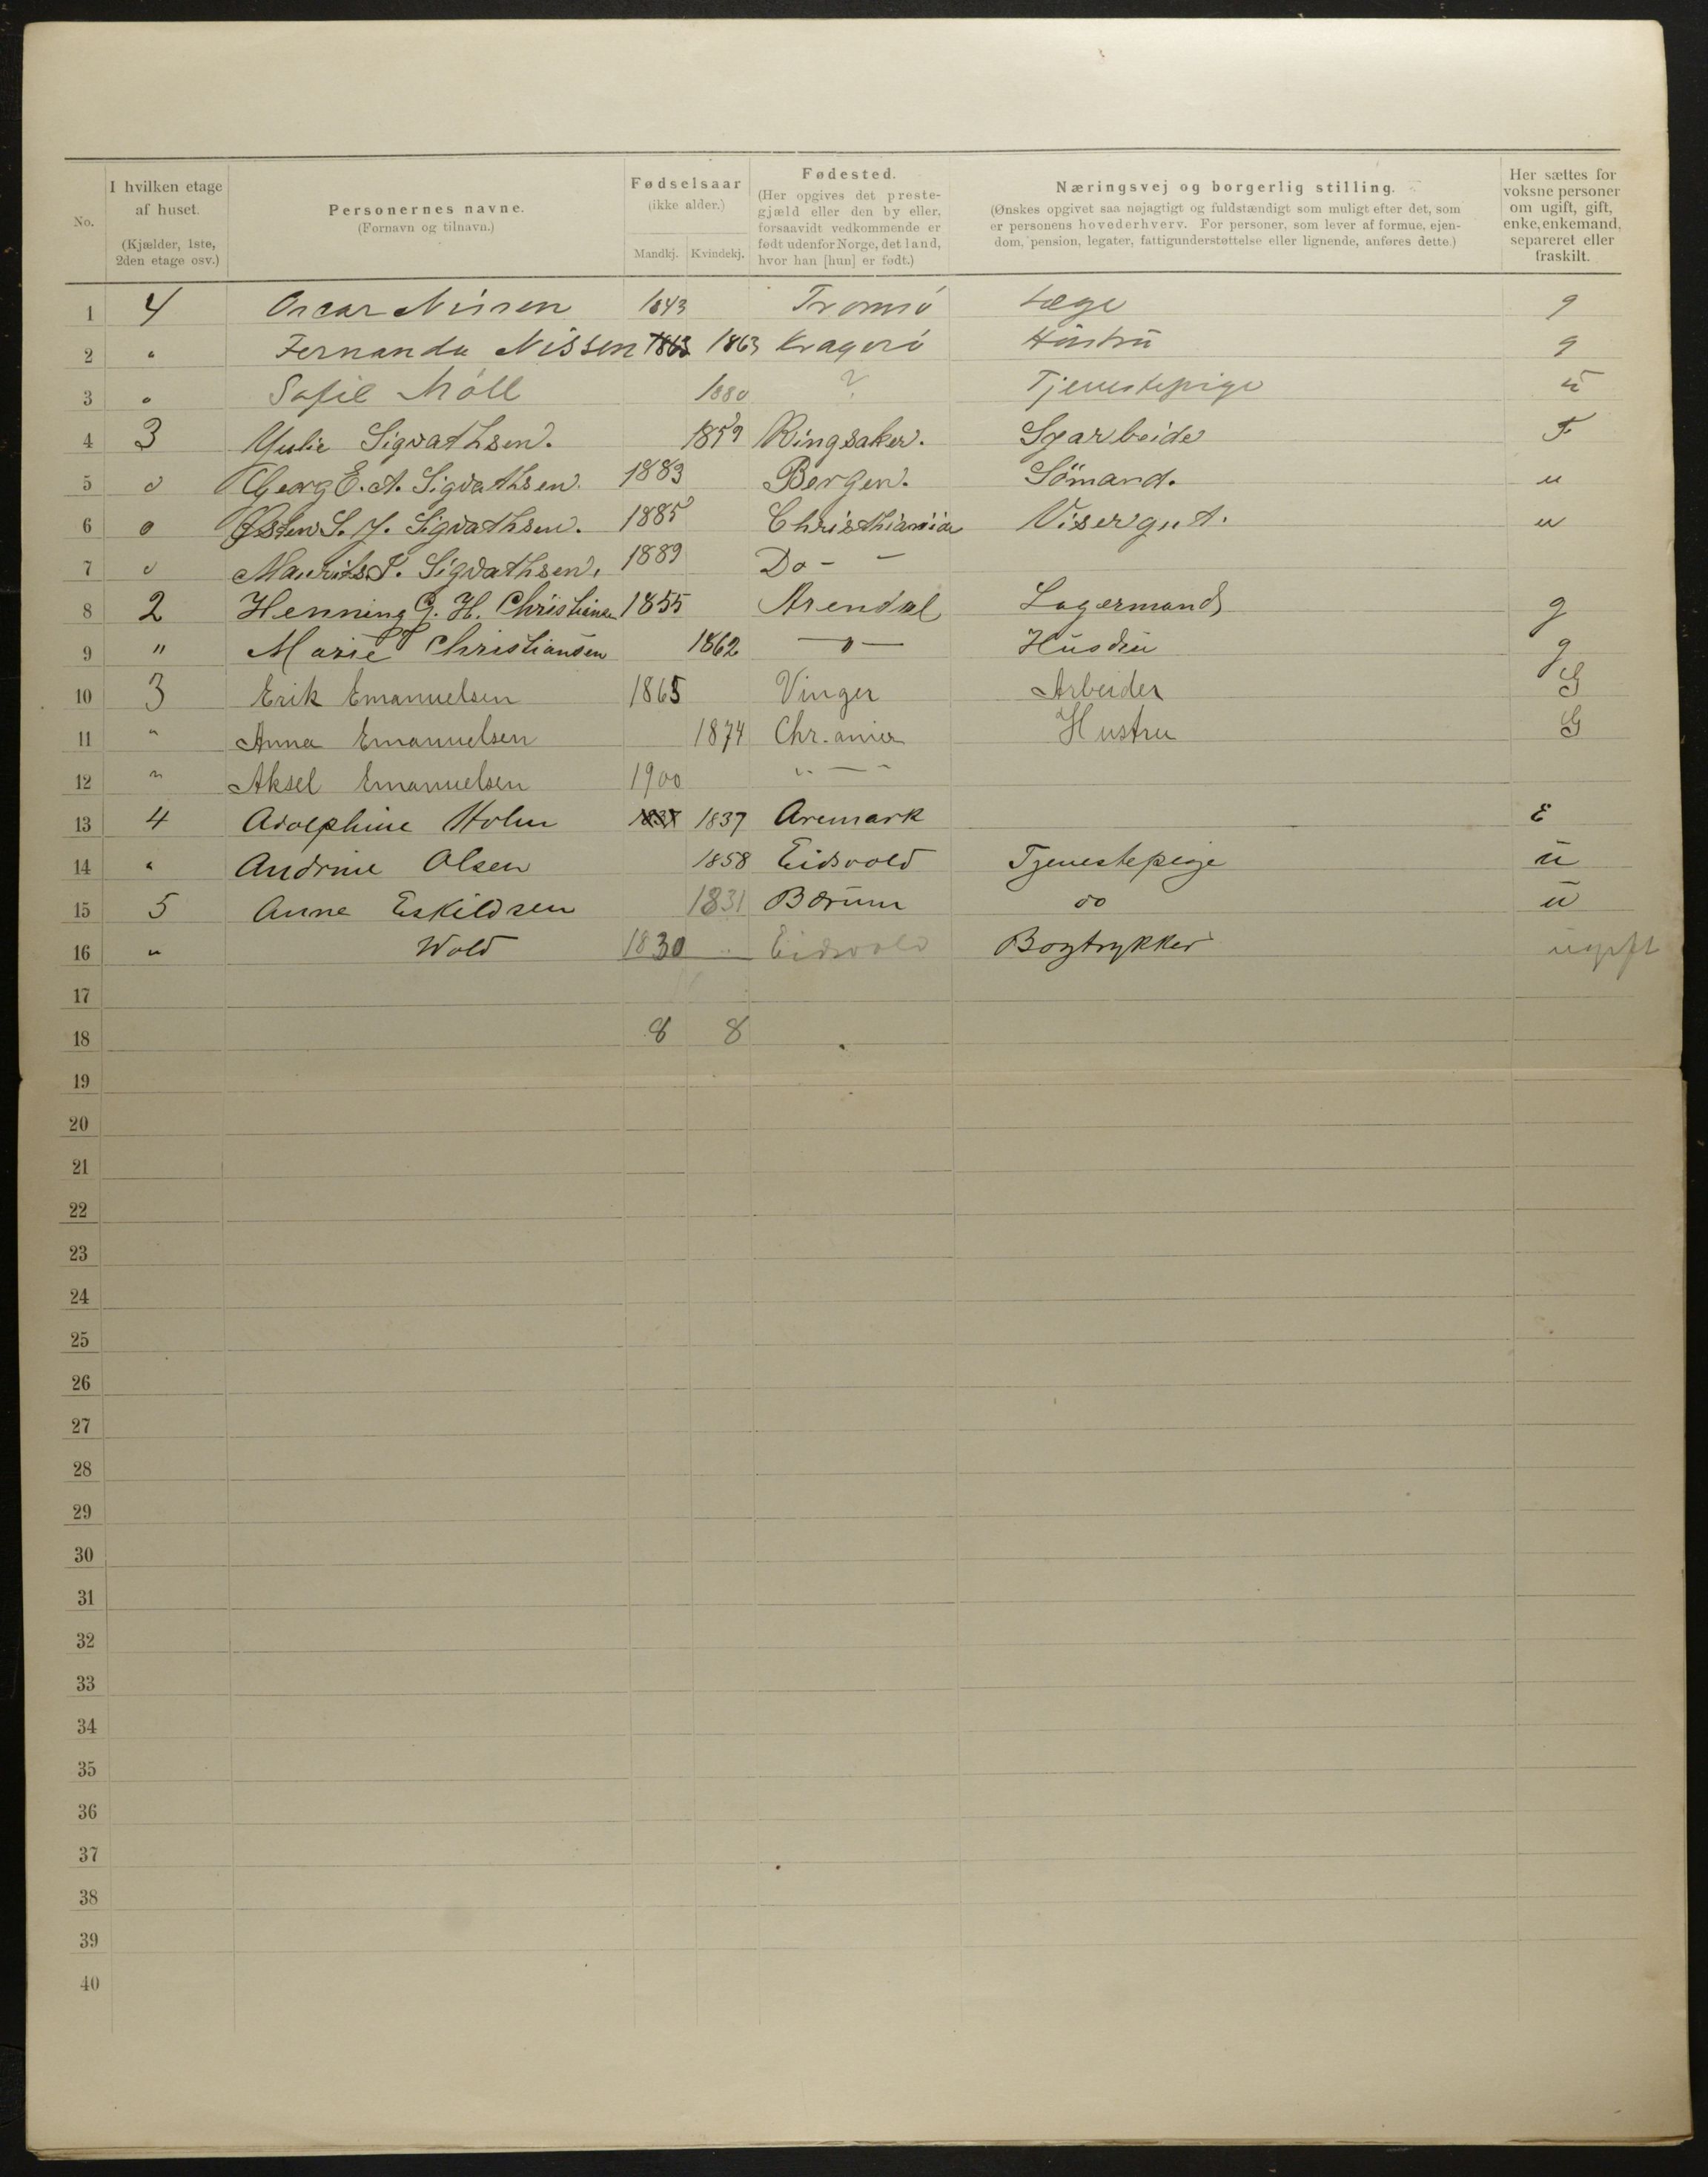 No.
I hvilken etage af huset. (Kjælder, 1ste, 2den etage osv.)
Personernes navne. (Fornavn og tilnavn.)
Fødselsaar (ikke alder.) Mandkj. Kvindekj.
Fødested. (Her opgives det prestegjæld eller den by eller, forsaavidt vedkommende er født udenfor Norge, det land, hvor han [hun] er født.)
Næringsvej og borgerlig stilling. (Ønskes opgivet saa nøjagtigt og fuldstændigt som muligt efter det, som er personens hovederhverv. For personer, som lever af formue, ejendom, pension, legater, fattigunderstøttelse eller lignende, anføres dette.)
Her sættes for voksne personer om ugift, gift, enke, enkemand, separeret eller fraskilt.
1 4 Oscar Nissen 1843 Tromsö Læge g
2 " Fernanda Nissen 1863 1863 Kragerö Hustru g
3 " Sofie Möll 1880 ? Tjenestepige u
4 3 Yulie Sigvathsen. 1859 Ringsaker. Syarbeide F
5 o Georg E. A. Sigvathsen. 1883 Bergen. Sömand. u
6 o Østen S. J. Sigvathsen. 1885 Christhiania Visergut. u
7 o Maurits S. Sigvathsen. 1889 Do - -
8 2 Henning G. H. Christiansen 1855 Arendal Lagermand g
9 " Marie Christiansen 1862 —"— Husdru g
10 3 Erik Emanuelsen 1865 Vinger Arbeider G
11 " Anna Emanuelsen 1874 Chr.ania Hustru G
12 " Aksel Emanuelsen 1900 " — "
13 4 Adolphine Holm 1837 1837 Aremark E
14 " Andrine Olsen 1858 Eidsvold Tjenestepige u
15 5 Anne Eskildsen 1831 Bærum do u
16 " Wold 1830 Eidsvold Bogtrykker ugift
17
18 8 8
19
20
21
22
23
24
25
26
27
28
29
30
31
32
33
34
35
36
37
38
39
40